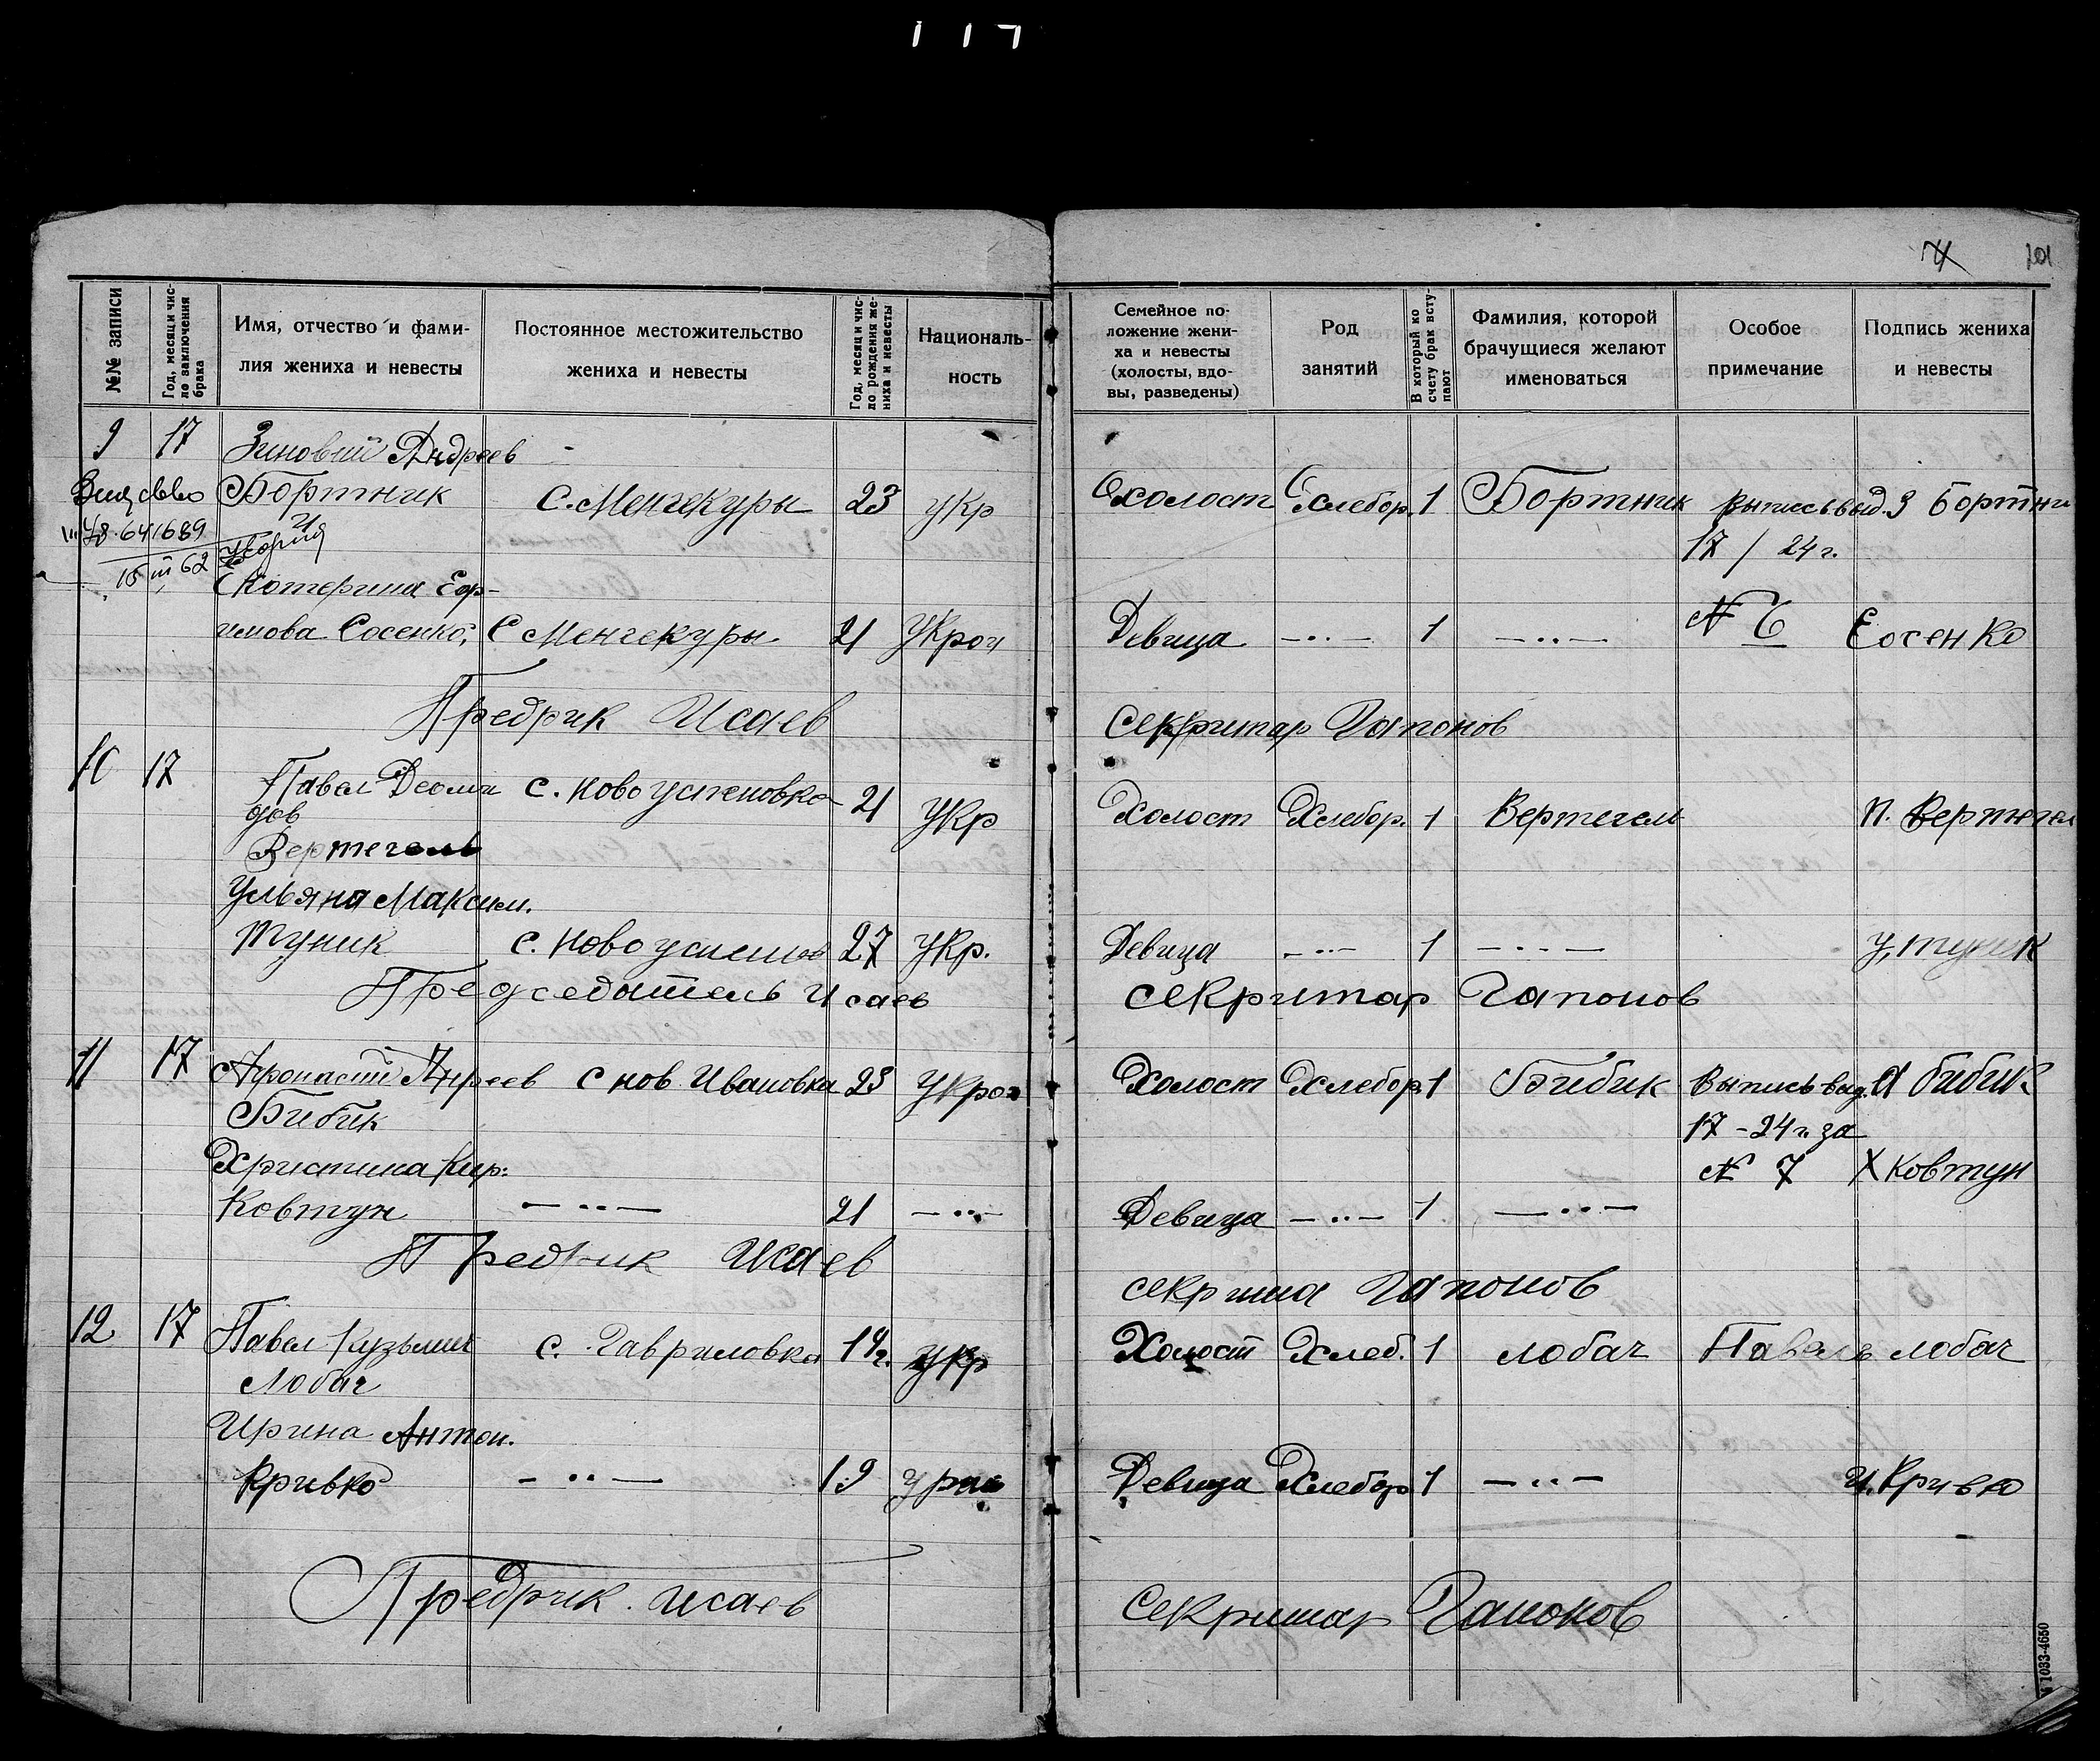 117
101
№№ записи
Год, месяц и чис-
ло заключения
брака
Имя, отчество и фами-
лия жениха и невесты
Постоянное местожительство
жениха и невесты
Год, месяц и чис-
ло рождения же-
ниха и невесты
Националь-
ность
Семейное по-
ложение жени-
ха и невесты
(холосты, вдо-
вы, разведены)
Род
занятий
В который по
счету брак всту-
пают
Фамилия, которой
брачущиеся желают
именоваться
Особое
примечание
Подпись жениха
и невесты
9 17 Зиновий Андреев
Бортник С. Менчекуры 23 укр Холост Хлебор. 1 Бортник Выпись выд. З Бортни
641689 17 / 24 г.
15 III 62
Катерина Еф-
имова Сосенко, С Менчекуры 21 Укра Девица —··— 1 —··— № 6 Сосенко
Предрик Исаев Секритар Гапонов
10 17 Павел Деоми
дов
с. Ново успеновка 21 Укр Холост Хлебор. 1 Вертегел П. Вертегел
Вертегель
Ульяна Максим.
Туник с. Ново успенов 27 Укр. Девица —··— 1 —··— У, туник
Председатель Исаев Секритар Гапонов
11 17 Афонасий Анреев с нов. Ивановка 23 Укра Холост Хлебор. 1 Бибик Выпись выд. А бибик
Бибик 17 - 24 г. за
Христина Кир: № 7 Х Ковтун
Ковтун —··— 21 —··— Девица —··— 1 —··—
Предрик Исаев Секрита Гапонов
12 17 Павел Кузьмич с. Гавриловка 19 г. укр Холост Хлеб. 1 Лобач Павель лобач
Лобач
Ирина Антон.
Кривко —··— 19 Девица Хлебор 1 —··— И. Кривко
Предрик. Исаев Секритар Гапонов
1033-4650